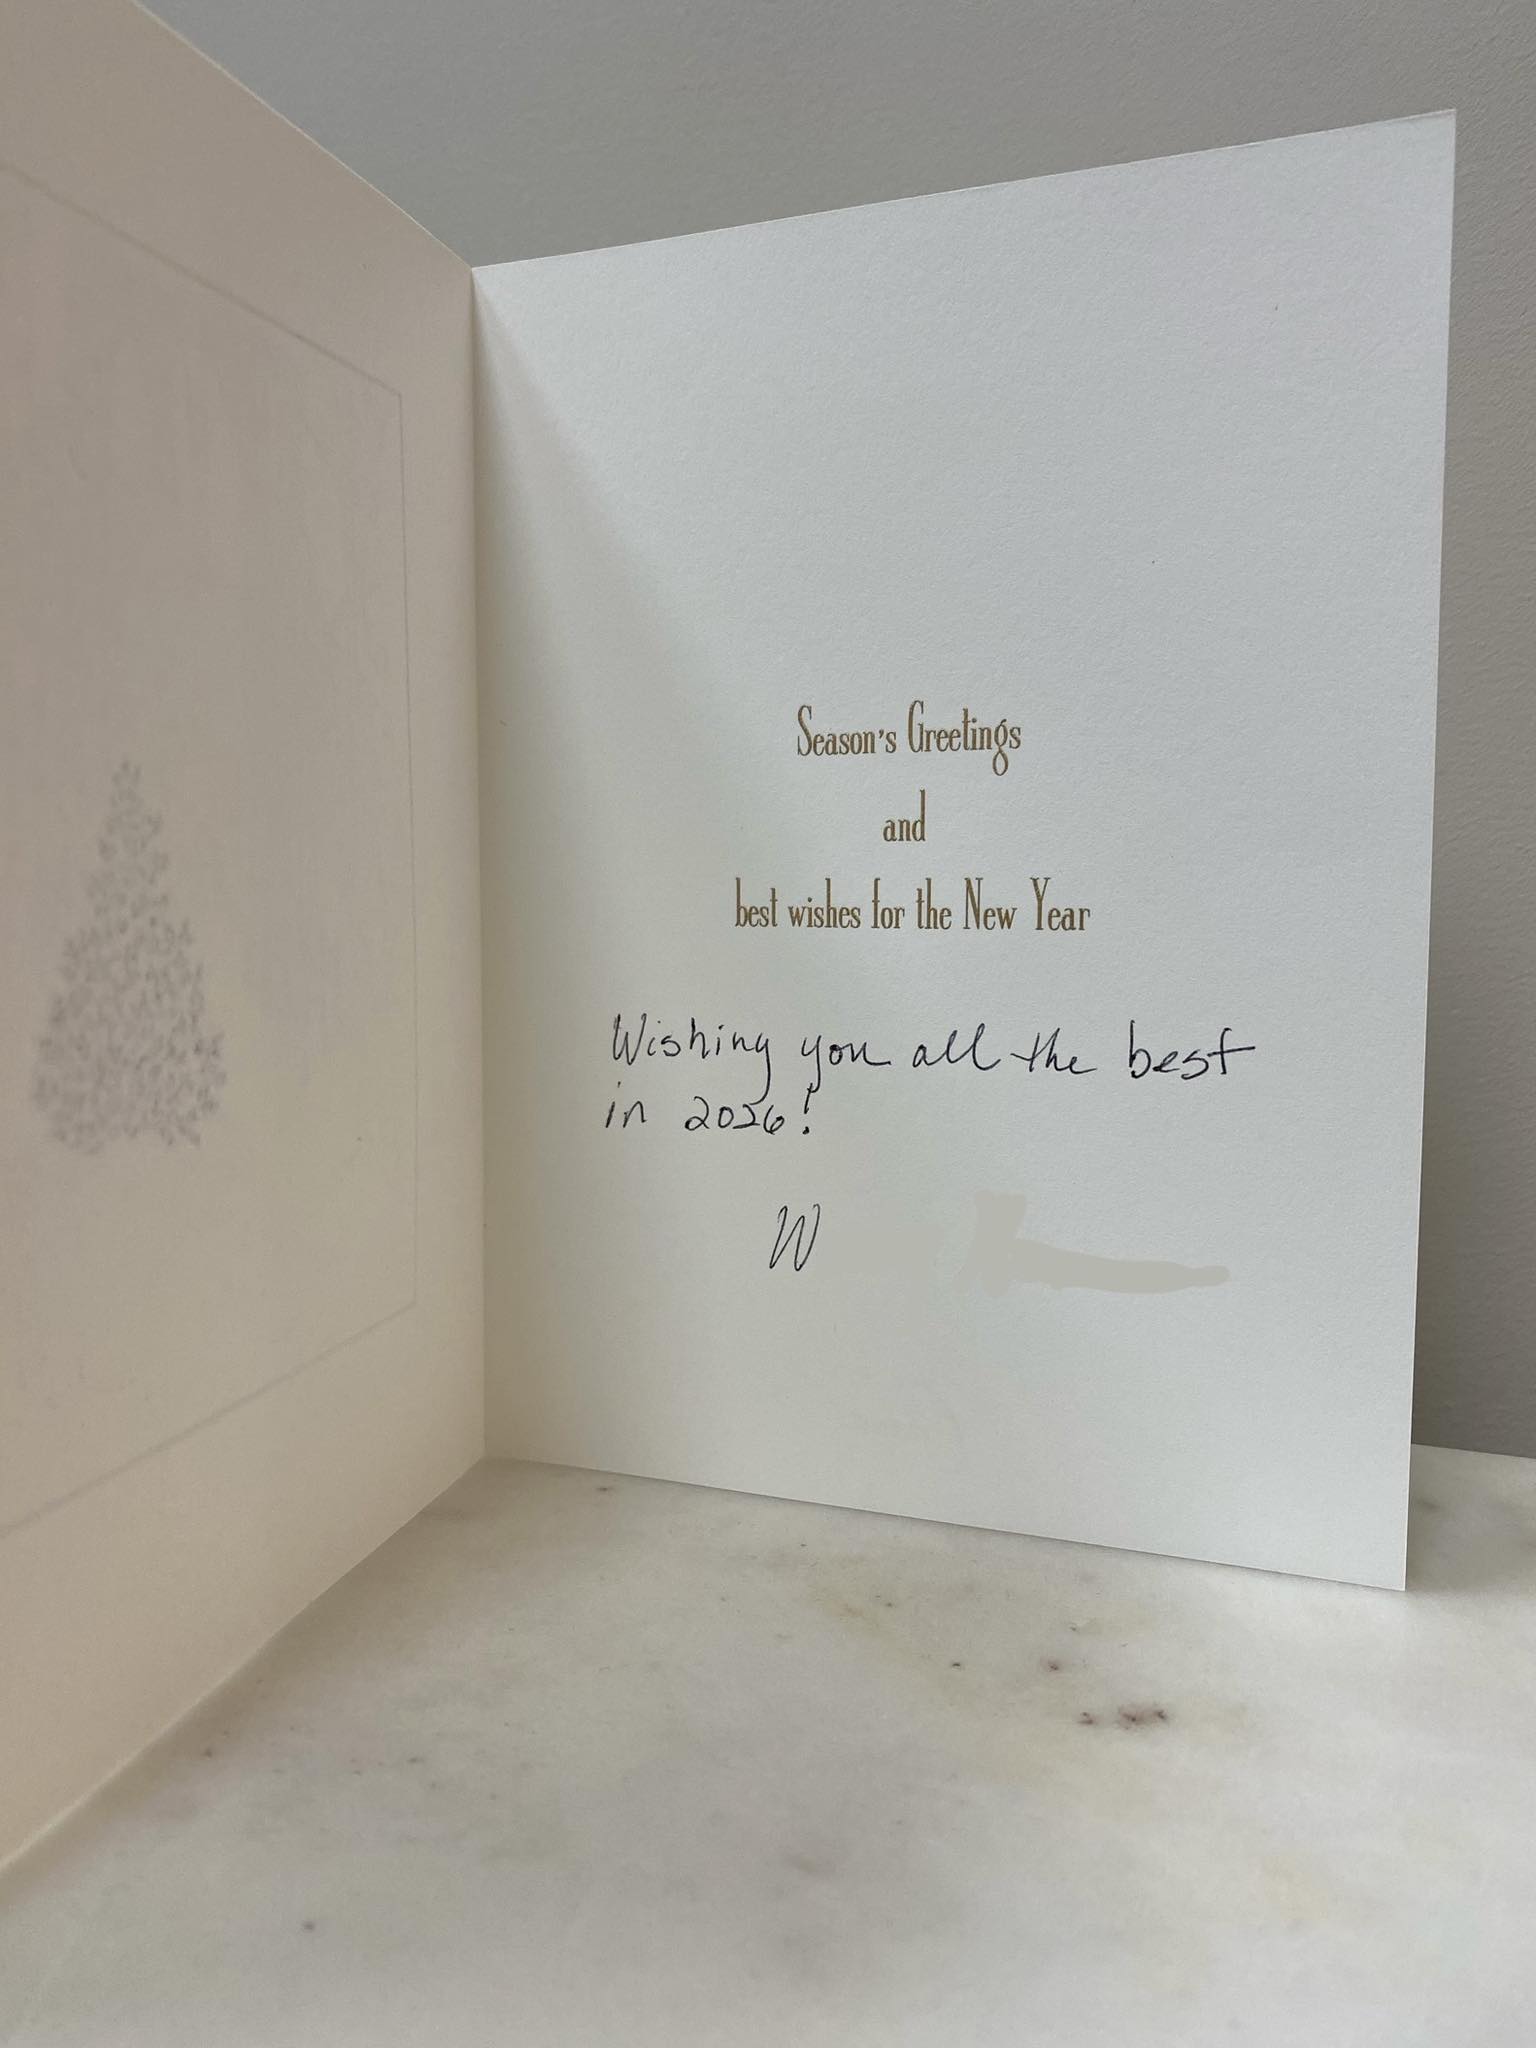 Season's Greetings
and
best wishes for the New Year
Wishing you all the best
in 2026!
W